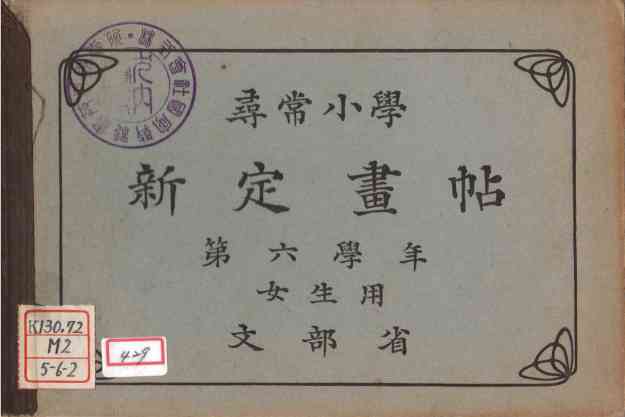 尋常小學
新定畫帖
第六學年
女生用
文部省
K130.72
M2
5-6-2
429